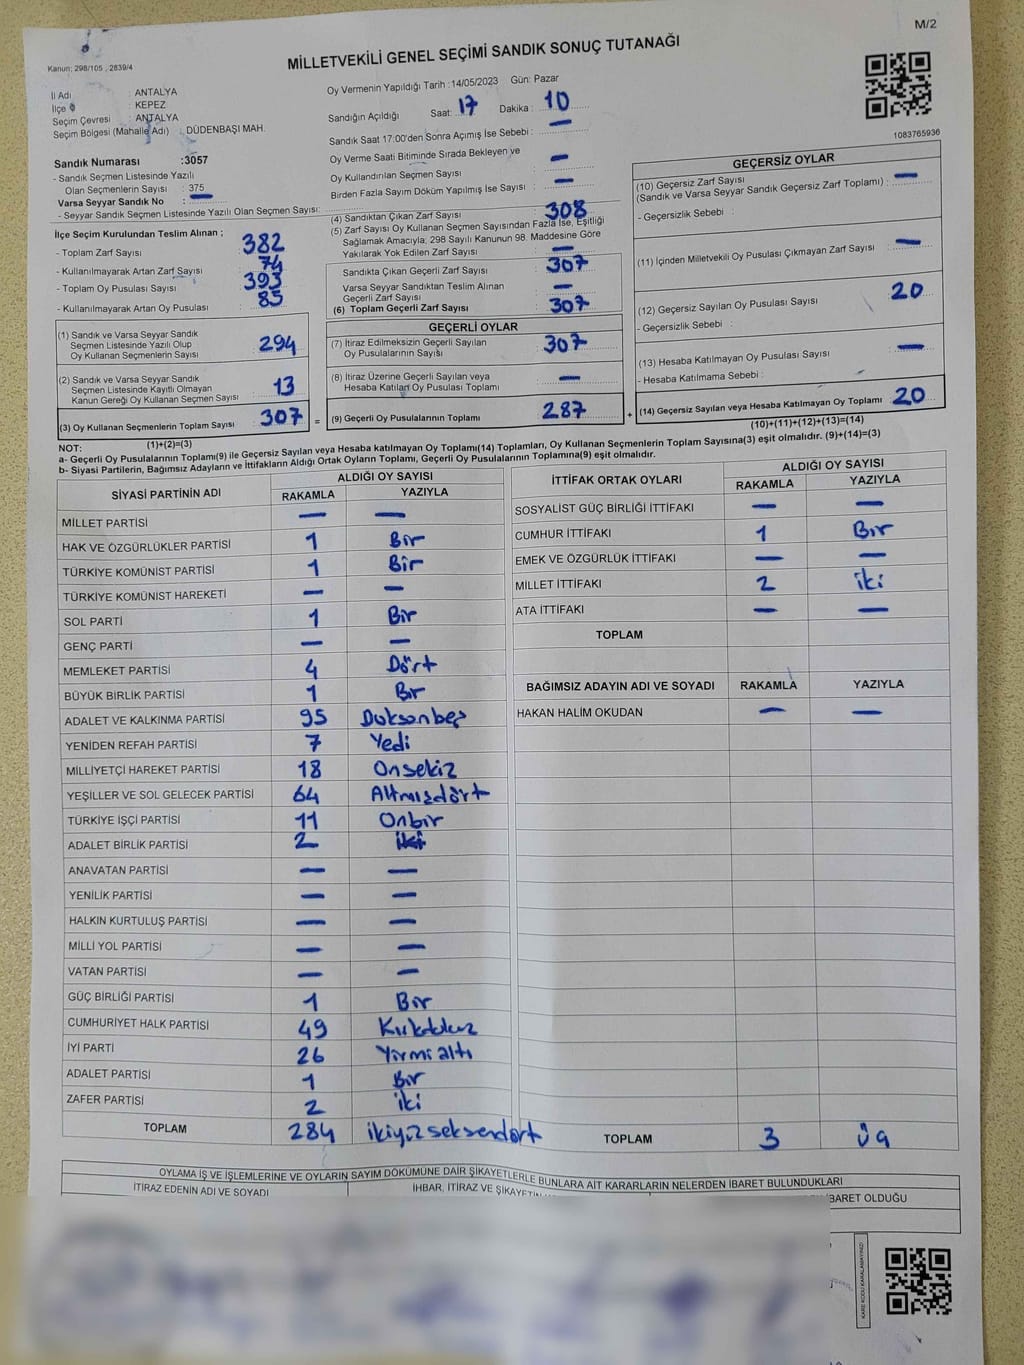 M/2
Kanun: 298/105 , 2839/4
MİLLETVEKİLİ GENEL SEÇİMİ SANDIK SONUÇ TUTANAĞI
İl Adı : ANTALYA
İlçe : KEPEZ
Seçim Çevresi : ANTALYA
Seçim Bölgesi (Mahalle Adı) : DÜDENBAŞI MAH.
Sandık Numarası :3057
- Sandık Seçmen Listesinde Yazılı
Olan Seçmenlerin Sayısı : 375
Varsa Seyyar Sandık No : —
- Seyyar Sandık Seçmen Listesinde Yazılı Olan Seçmen Sayısı:
İlçe Seçim Kurulundan Teslim Alınan ;
- Toplam Zarf Sayısı : 382
- Kullanılmayarak Artan Zarf Sayısı : 74
- Toplam Oy Pusulası Sayısı : 393
- Kullanılmayarak Artan Oy Pusulası : 85
(1) Sandık ve Varsa Seyyar Sandık
Seçmen Listesinde Yazılı Olup
Oy Kullanan Seçmenlerin Sayısı : 294
(2) Sandık ve Varsa Seyyar Sandık
Seçmen Listesinde Kayıtlı Olmayan
Kanun Gereği Oy Kullanan Seçmen Sayısı : 13
(3) Oy Kullanan Seçmenlerin Toplam Sayısı : 307 =
(1)+(2)=(3)
Oy Vermenin Yapıldığı Tarih :14/05/2023 Gün: Pazar
Sandığın Açıldığı Saat: 17 Dakika : 10
Sandık Saat 17.00'den Sonra Açımış İse Sebebi : —
Oy Verme Saati Bitiminde Sırada Bekleyen ve
Oy Kullandırılan Seçmen Sayısı : —
Birden Fazla Sayım Döküm Yapılmış İse Sayısı : —
(4) Sandıktan Çıkan Zarf Sayısı : 308
(5) Zarf Sayısı Oy Kullanan Seçmen Sayısından Fazla İse, Eşitliği
Sağlamak Amacıyla, 298 Sayılı Kanunun 98. Maddesine Göre
Yakılarak Yok Edilen Zarf Sayısı : —
Sandıkta Çıkan Geçerli Zarf Sayısı : 307
Varsa Seyyar Sandıktan Teslim Alınan
Geçerli Zarf Sayısı : —
(6) Toplam Geçerli Zarf Sayısı : 307
GEÇERLİ OYLAR
(7) İtiraz Edilmeksizin Geçerli Sayılan
Oy Pusulalarının Sayısı : 307
(8) İtiraz Üzerine Geçerli Sayılan veya
Hesaba Katılan Oy Pusulası Toplamı : —
(9) Geçerli Oy Pusulalarının Toplamı : 287 +
1083765936
GEÇERSİZ OYLAR
(10) Geçersiz Zarf Sayısı
(Sandık ve Varsa Seyyar Sandık Geçersiz Zarf Toplamı) : —
- Geçersizlik Sebebi :
(11) İçinden Milletvekili Oy Pusulası Çıkmayan Zarf Sayısı : —
(12) Geçersiz Sayılan Oy Pusulası Sayısı : 20
- Geçersizlik Sebebi :
(13) Hesaba Katılmayan Oy Pusulası Sayısı : —
- Hesaba Katılmama Sebebi :
(14) Geçersiz Sayılan veya Hesaba Katılmayan Oy Toplamı : 20
(10)+(11)+(12)+(13)=(14)
NOT:
a- Geçerli Oy Pusulalarının Toplamı(9) ile Geçersiz Sayılan veya Hesaba katılmayan Oy Toplamı(14) Toplamları, Oy Kullanan Seçmenlerin Toplam Sayısına(3) eşit olmalıdır. (9)+(14)=(3)
b- Siyasi Partilerin, Bağımsız Adayların ve İttifakların Aldığı Ortak Oyların Toplamı, Geçerli Oy Pusulalarının Toplamına(9) eşit olmalıdır.
SİYASİ PARTİNİN ADI ALDIĞI OY SAYISI
RAKAMLA YAZIYLA
MİLLET PARTİSİ — —
HAK VE ÖZGÜRLÜKLER PARTİSİ 1 Bir
TÜRKİYE KOMÜNİST PARTİSİ 1 Bir
TÜRKİYE KOMÜNİST HAREKETİ — —
SOL PARTİ 1 Bir
GENÇ PARTİ — —
MEMLEKET PARTİSİ 4 Dört
BÜYÜK BİRLİK PARTİSİ 1 Bir
ADALET VE KALKINMA PARTİSİ 95 Doksanbeş
YENİDEN REFAH PARTİSİ 7 Yedi
MİLLİYETÇİ HAREKET PARTİSİ 18 Onsekiz
YEŞİLLER VE SOL GELECEK PARTİSİ 64 Altmışdört
TÜRKİYE İŞÇİ PARTİSİ 11 Onbir
ADALET BİRLİK PARTİSİ 2 iki
ANAVATAN PARTİSİ — —
YENİLİK PARTİSİ — —
HALKIN KURTULUŞ PARTİSİ — —
MİLLİ YOL PARTİSİ — —
VATAN PARTİSİ — —
GÜÇ BİRLİĞİ PARTİSİ 1 Bir
CUMHURİYET HALK PARTİSİ 49
İYİ PARTİ 26 Yirmi altı
ADALET PARTİSİ 1 Bir
ZAFER PARTİSİ 2 iki
TOPLAM 284 ikiyüzseksendört
İTTİFAK ORTAK OYLARI ALDIĞI OY SAYISI
RAKAMLA YAZIYLA
SOSYALİST GÜÇ BİRLİĞİ İTTİFAKI — —
CUMHUR İTTİFAKI 1 Bir
EMEK VE ÖZGÜRLÜK İTTİFAKI — —
MİLLET İTTİFAKI 2 iki
ATA İTTİFAKI — —
TOPLAM
BAĞIMSIZ ADAYIN ADI VE SOYADI RAKAMLA YAZIYLA
HAKAN HALİM OKUDAN — —
TOPLAM 3 üç
OYLAMA İŞ VE İŞLEMLERİNE VE OYLARIN SAYIM DÖKÜMÜNE DAİR ŞİKAYETLERLE BUNLARA AİT KARARLARIN NELERDEN İBARET BULUNDUKLARI
İTİRAZ EDENİN ADI VE SOYADI İHBAR, İTİRAZ VE ŞİKAYETİN İBARET OLDUĞU
KARE KODU KARALAMAYINIZ!